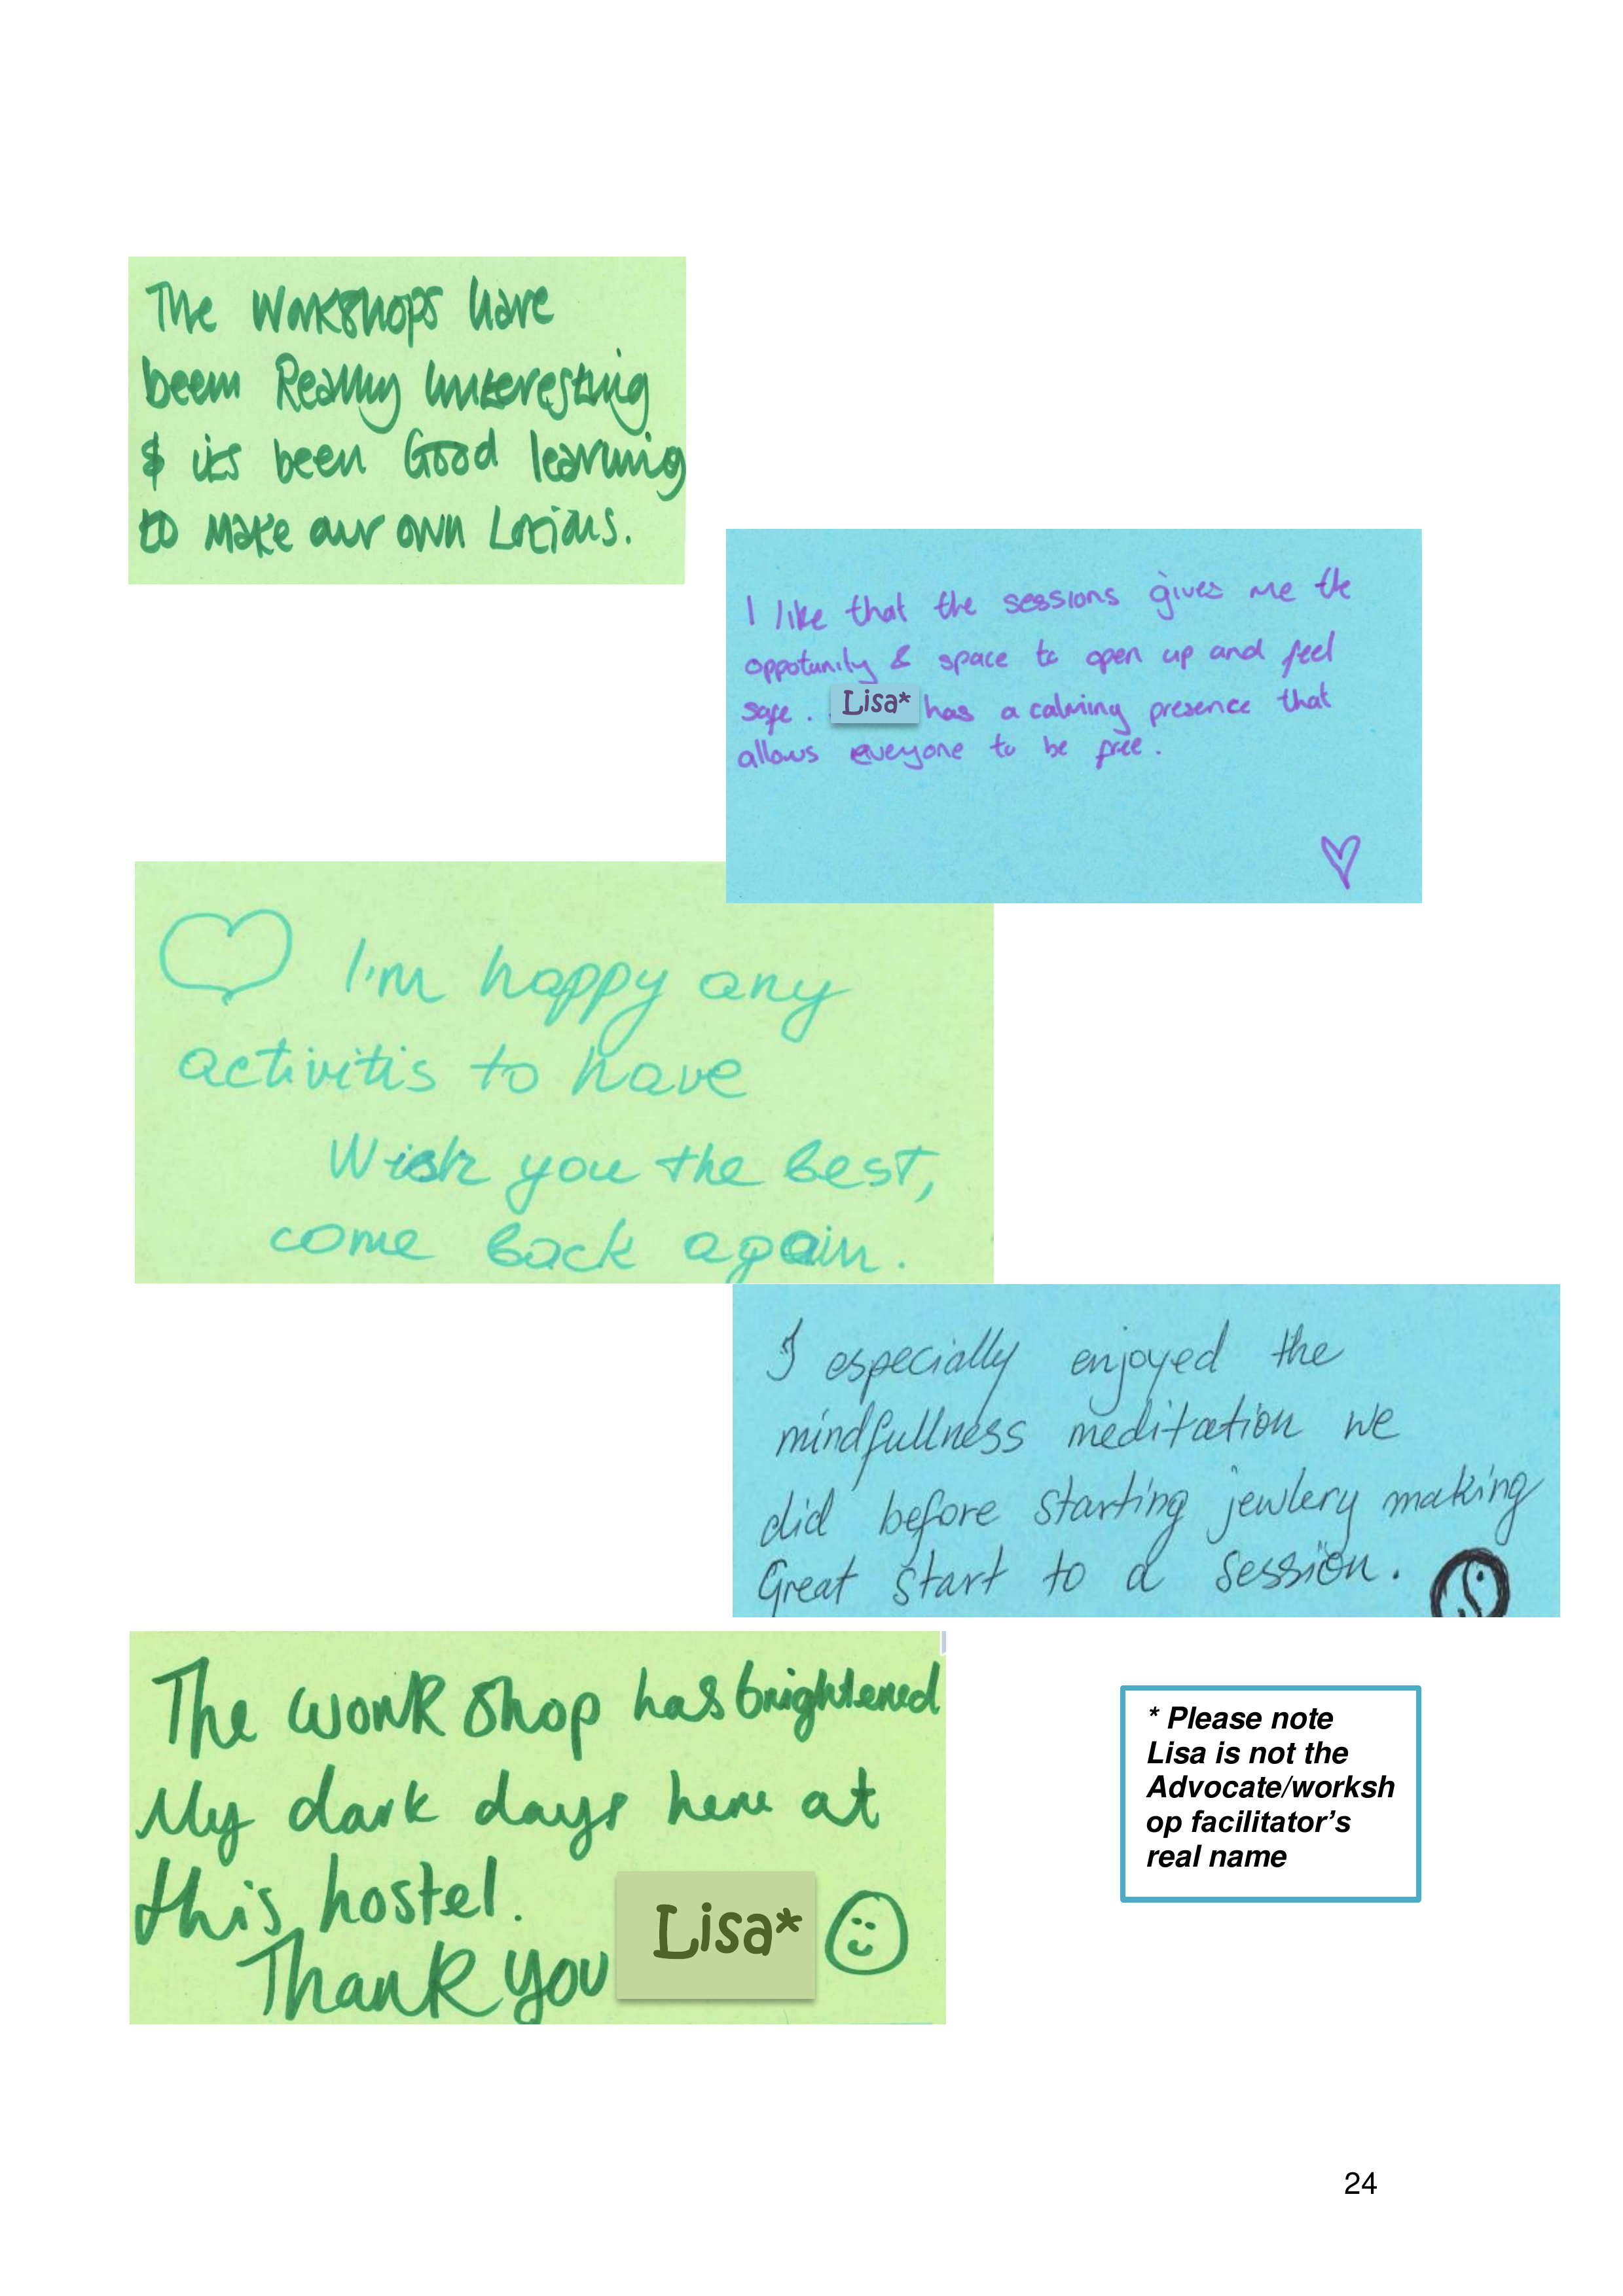 The Workshops have
been Really Interesting
& its been Good learning
to Make our own Lotions.
I like that the sessions gives me the
oppotunity & space to open up and feel
safe. Lisa* has a calming presence that
allows eveyone to be free.
I'm happy any
activitis to have
Wish you the best,
come back again.
I especially enjoyed the
mindfullness meditation we
did before starting jewlery making
Great start to a session.
The work shop has brightened
My dark days here at
this hostel.
Thank you Lisa*
* Please note
Lisa is not the
Advocate/worksh
op facilitator's
real name
24